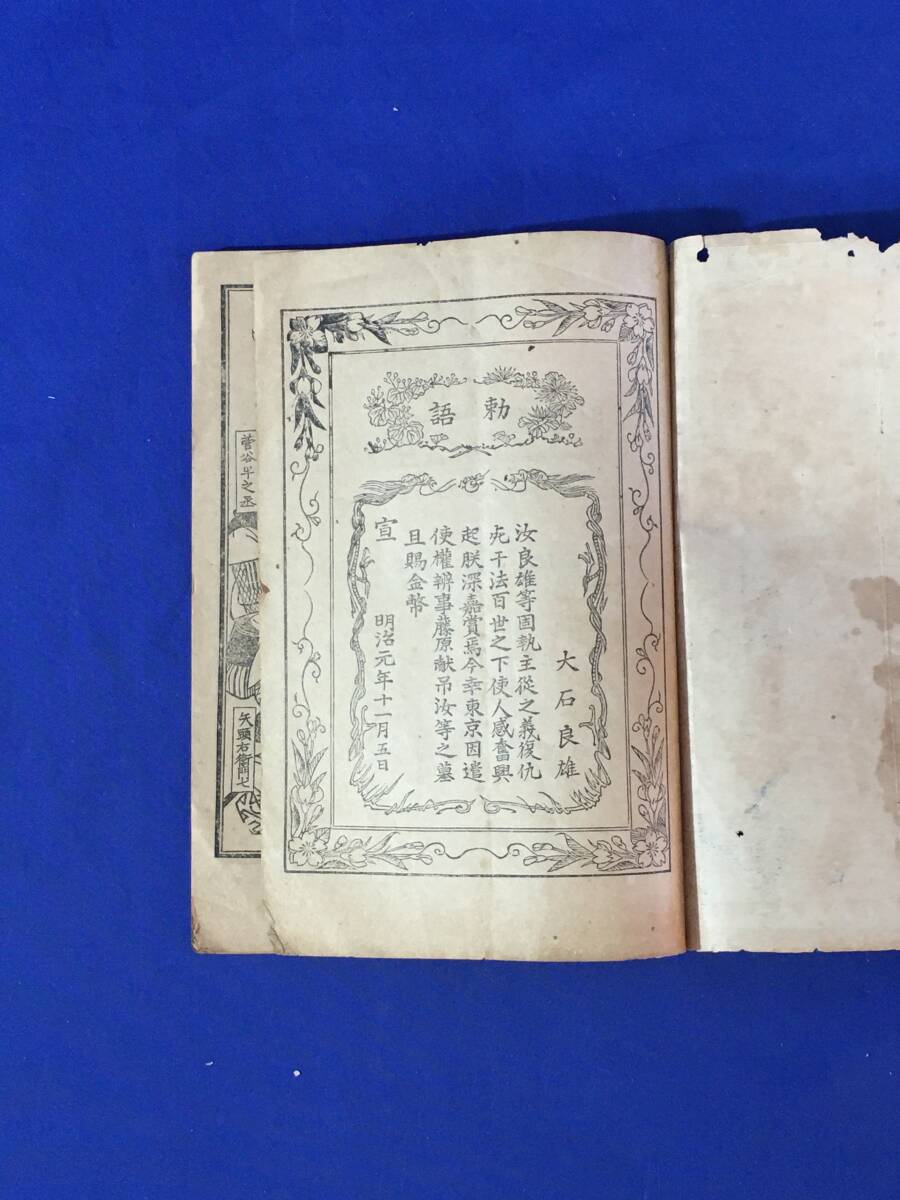 勅語
大石良雄
汝良雄等固執主從之義復仇
死于法百世之下使人感奮興
起朕深嘉賞焉今幸東京因遣
使權辨事藤原献吊汝等之墓
且賜金幣
宣 明治元年十一月五日
菅谷半之丞
矢頭右衛門七